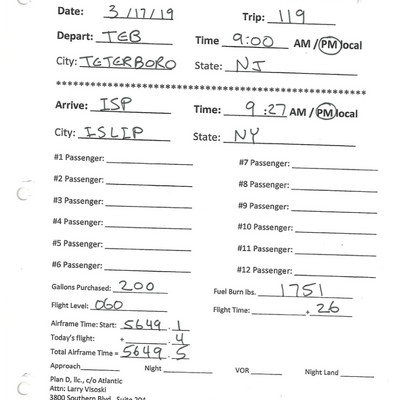 Date: 3/17/19 Trip: 119
Depart: TEB Time 9:00 AM / PM local
City: TETERBORO State: NJ
****************************************************
Arrive: ISP Time: 9:27 AM / PM local
City: ISLIP State: NY
#1 Passenger: #7 Passenger:
#2 Passenger: #8 Passenger:
#3 Passenger: #9 Passenger:
#4 Passenger: #10 Passenger:
#5 Passenger: #11 Passenger:
#6 Passenger: #12 Passenger:
Gallons Purchased: 200 Fuel Burn lbs. 1751
Flight Level: 060 Flight Time: .26
Airframe Time: Start: 5649.1
Today's flight: + .4
Total Airframe Time = 5649.5
Approach Night VOR Night Land
Plan D, llc., c/o Atlantic
Attn: Larry Visoski
3800 Southern Blvd., Suite 204